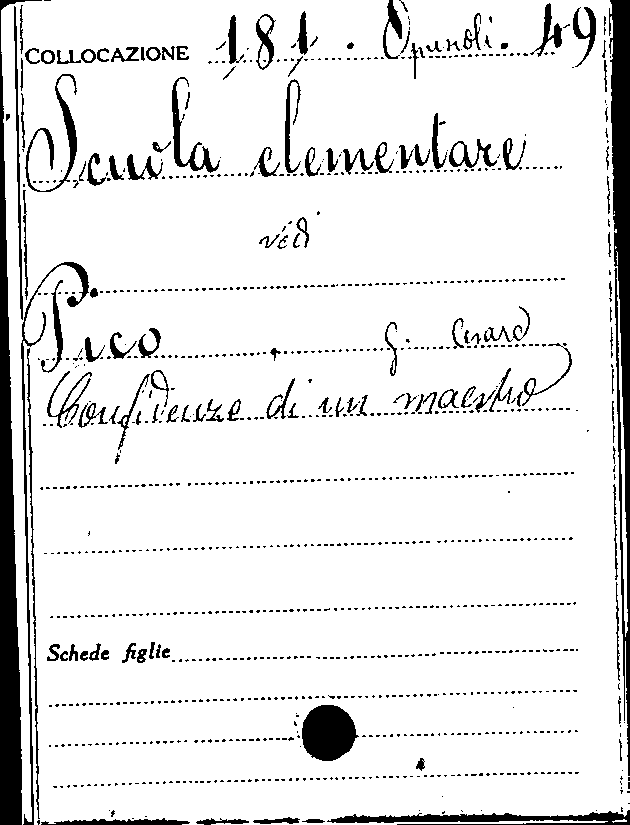 COLLOCAZIONE 181. Opuscoli. 49
Scuola elementare
vedi
Pico G. Cesare
Confidenze di un maestro
Schede figlie